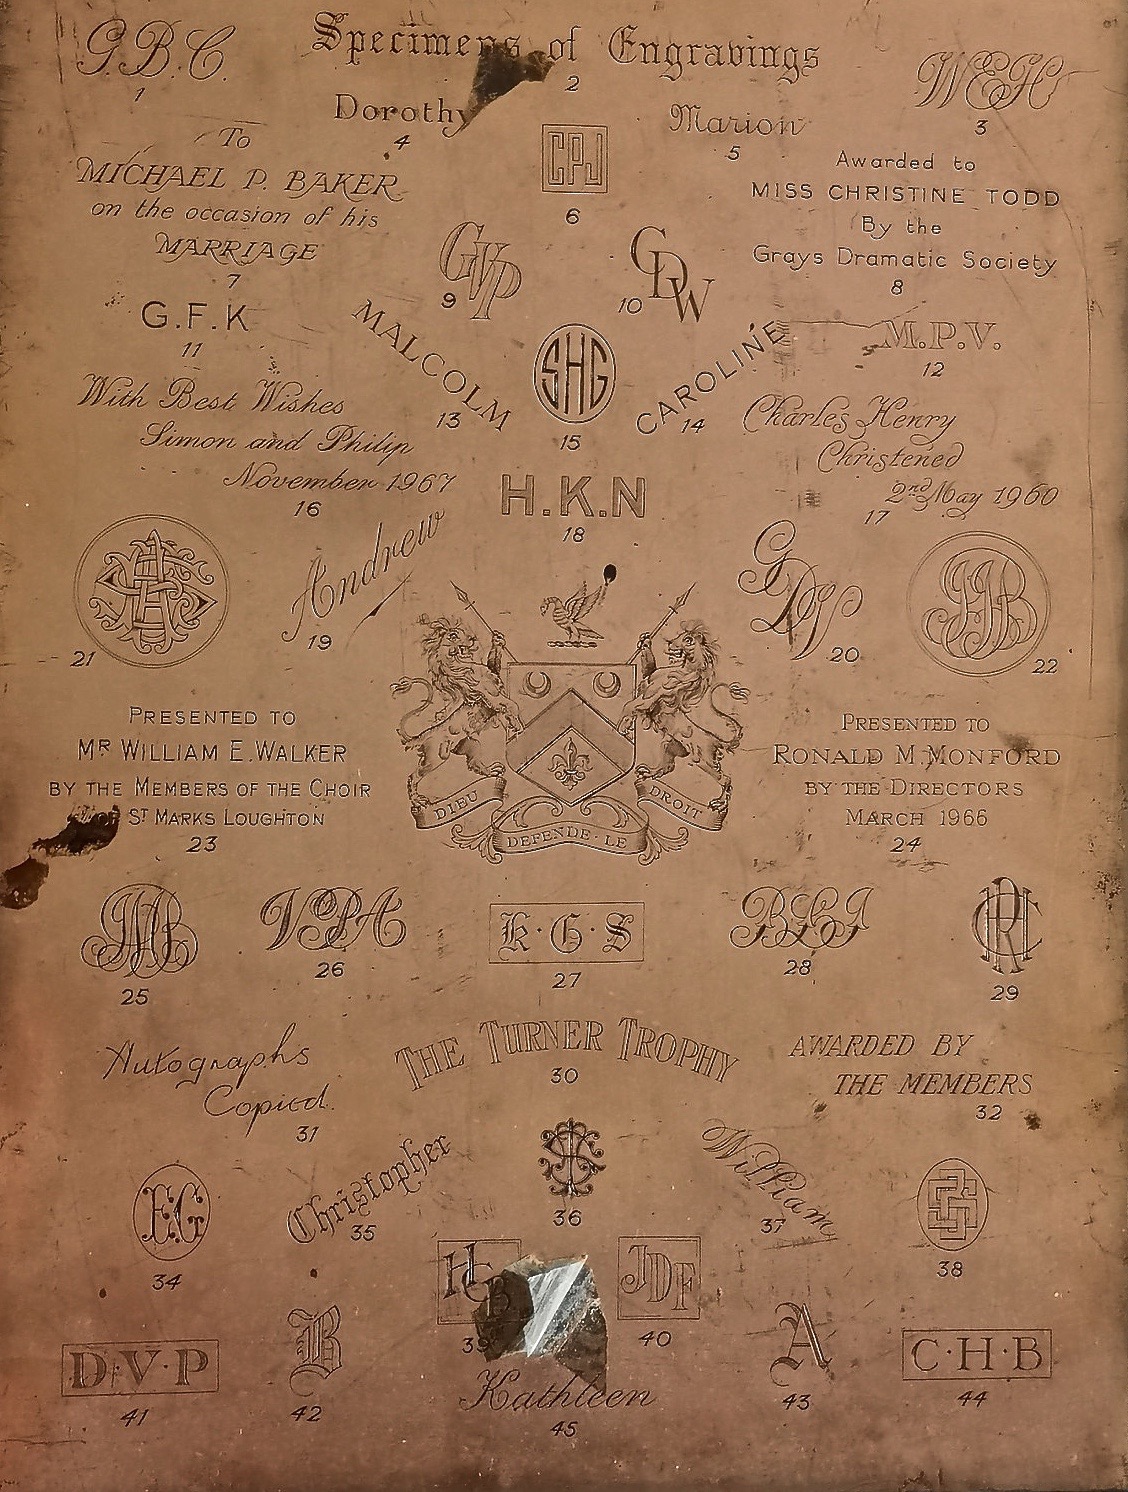 G.B.C.
1
Specimens of Engravings
2
W E H
3
Dorothy
4
Marion
5
CPJ
6
To
MICHAEL P. BAKER
on the occasion of his
MARRIAGE
7
Awarded to
MISS CHRISTINE TODD
By the
Grays Dramatic Society
8
GVP
9
GDW
10
G.F.K
11
M.P.V.
12
MALCOLM
13
CAROLINE
14
SHG
15
With Best Wishes
Simon and Philip
November 1967
16
Charles Henry
Christened
2nd May 1960
17
H.K.N
18
Andrew
19
20
21
22
DIEU
DEFENDE · LE
DROIT
PRESENTED TO
MR WILLIAM E. WALKER
BY THE MEMBERS OF THE CHOIR
ST MARKS LOUGHTON
23
PRESENTED TO
RONALD M. MONFORD
BY THE DIRECTORS
MARCH 1966
24
25
26
K·G·S
27
28
29
THE TURNER TROPHY
30
Autographs
Copied.
31
AWARDED BY
THE MEMBERS
32
EG
34
Christopher
35
36
William
37
38
HCB
39
JDF
40
D·V·P
41
B
42
A
43
C·H·B
44
Kathleen
45